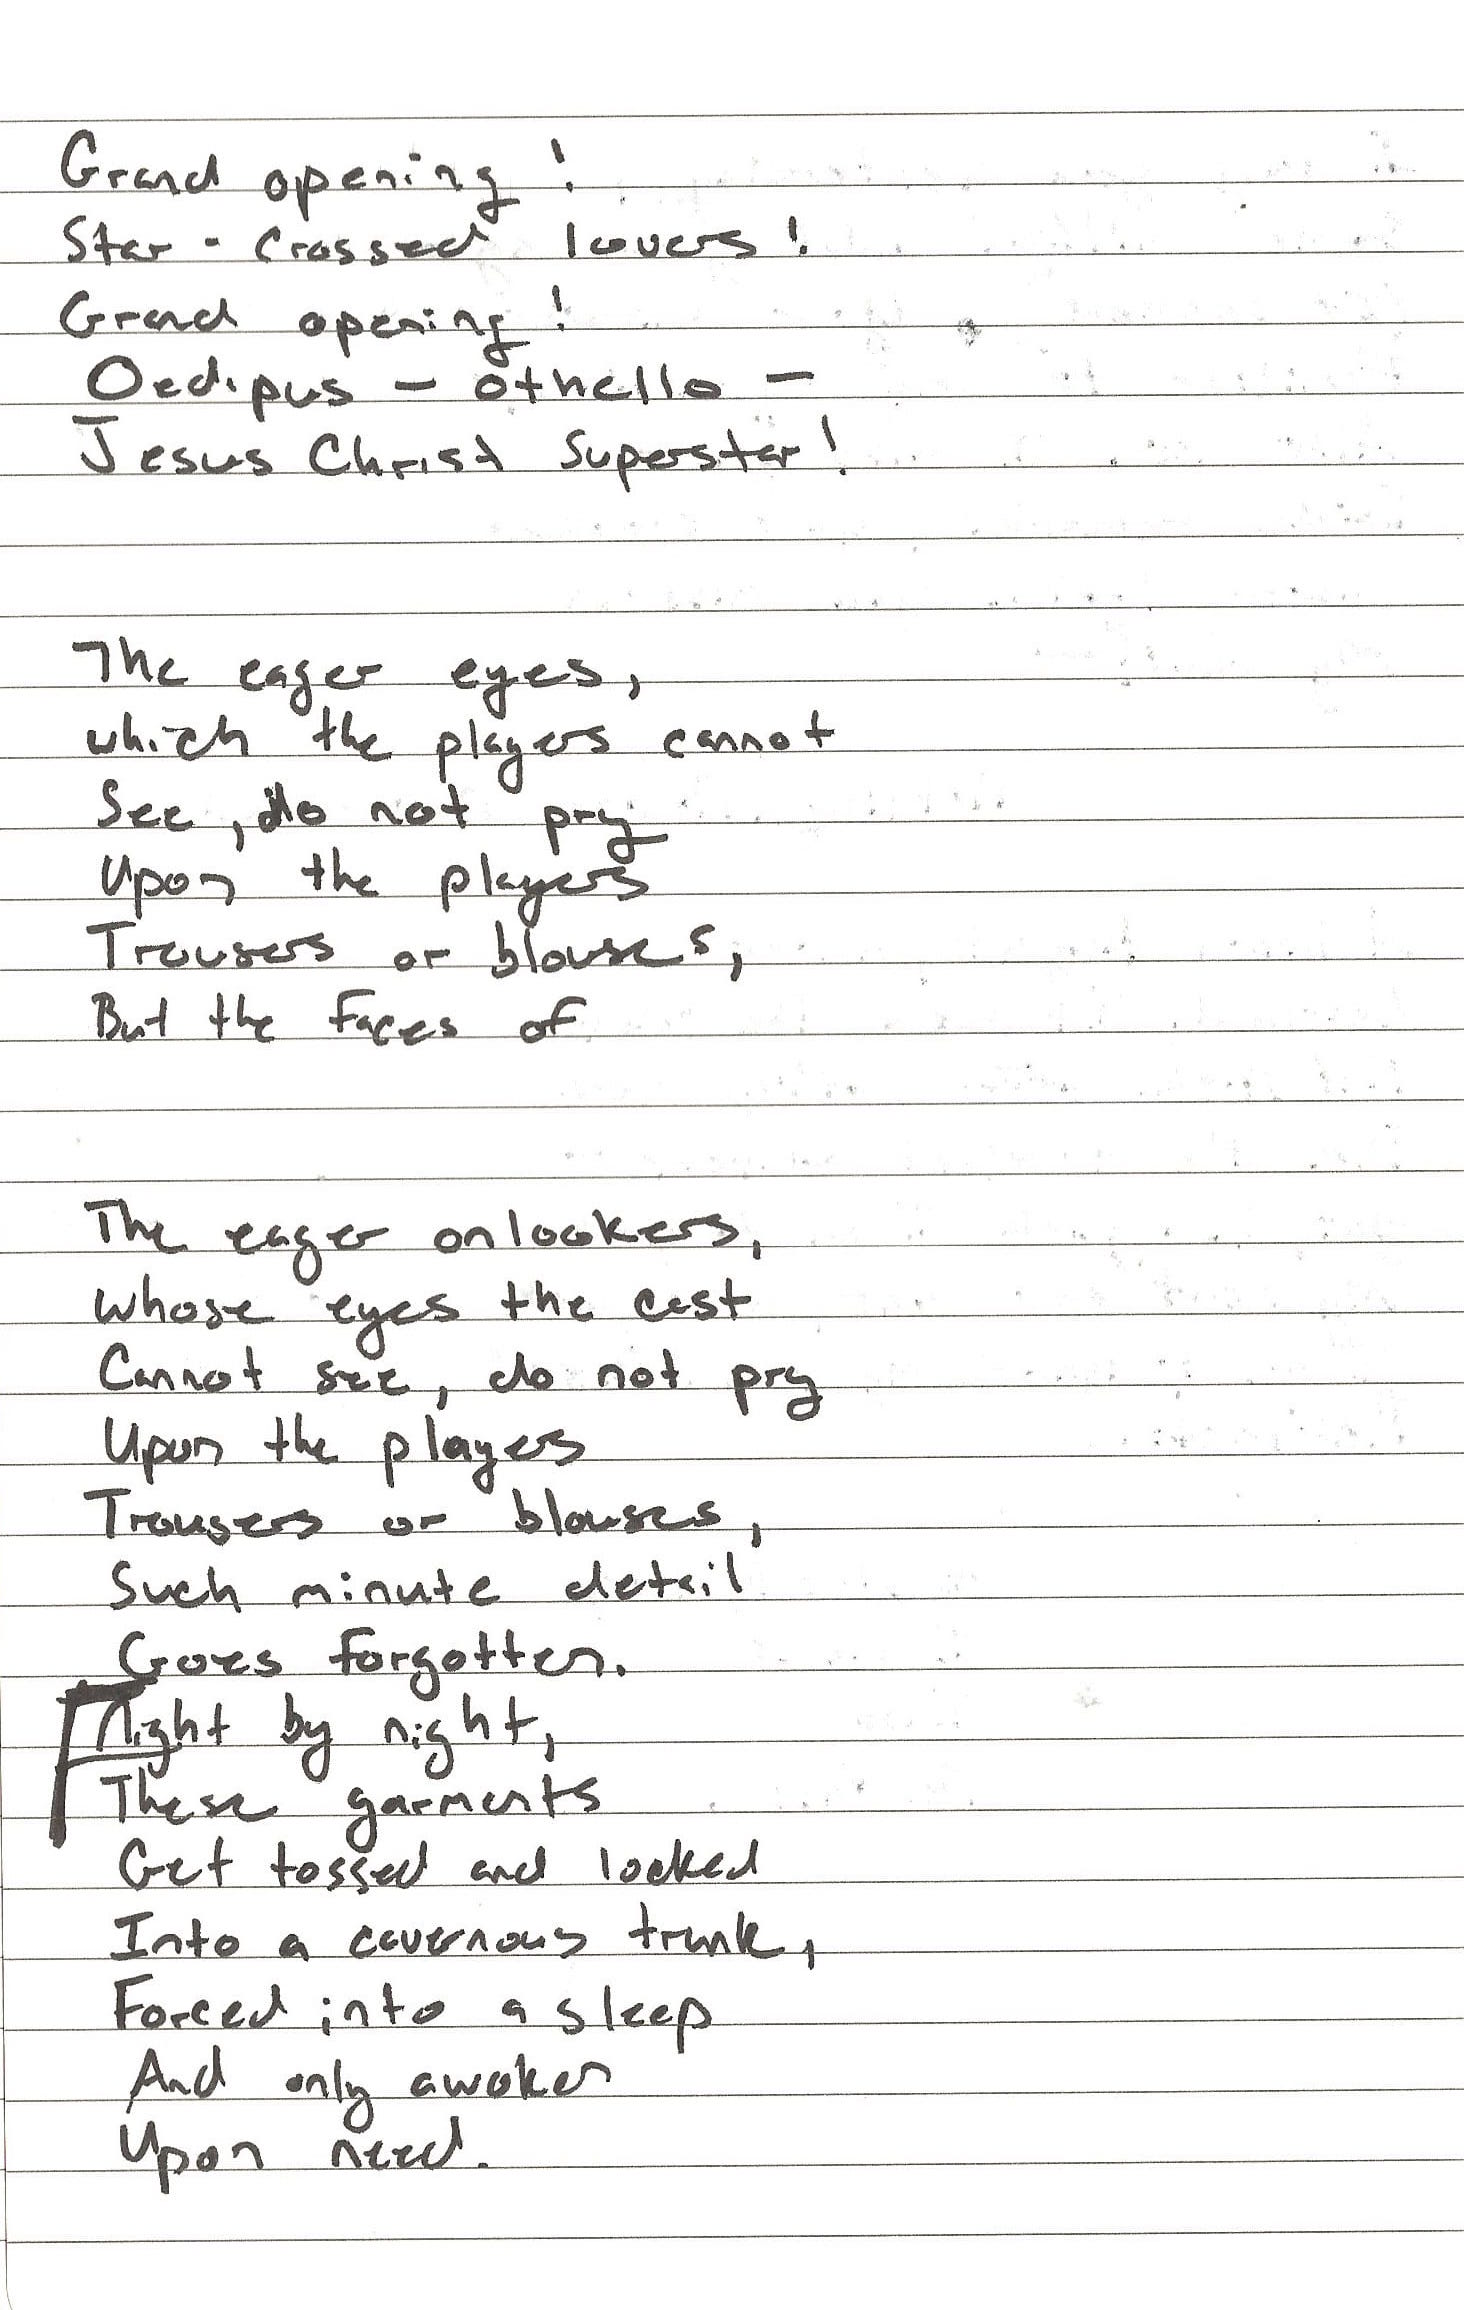 Grand opening!
Star-Crossed lovers!
Grand opening!
Oedipus - Othello -
Jesus Christ Superstar!
The eager eyes,
which the players cannot
See, do not pry
Upon the players
Trousers or blouses,
But the faces of
The eager onlookers,
whose eyes the cast
Cannot see, do not pry
Upon the players
Trousers or blouses,
Such minute detail
Goes forgotten.
Night by night,
These garments
Get tossed and locked
Into a cavernous trunk,
Forced into a sleep
And only awoken
Upon need.